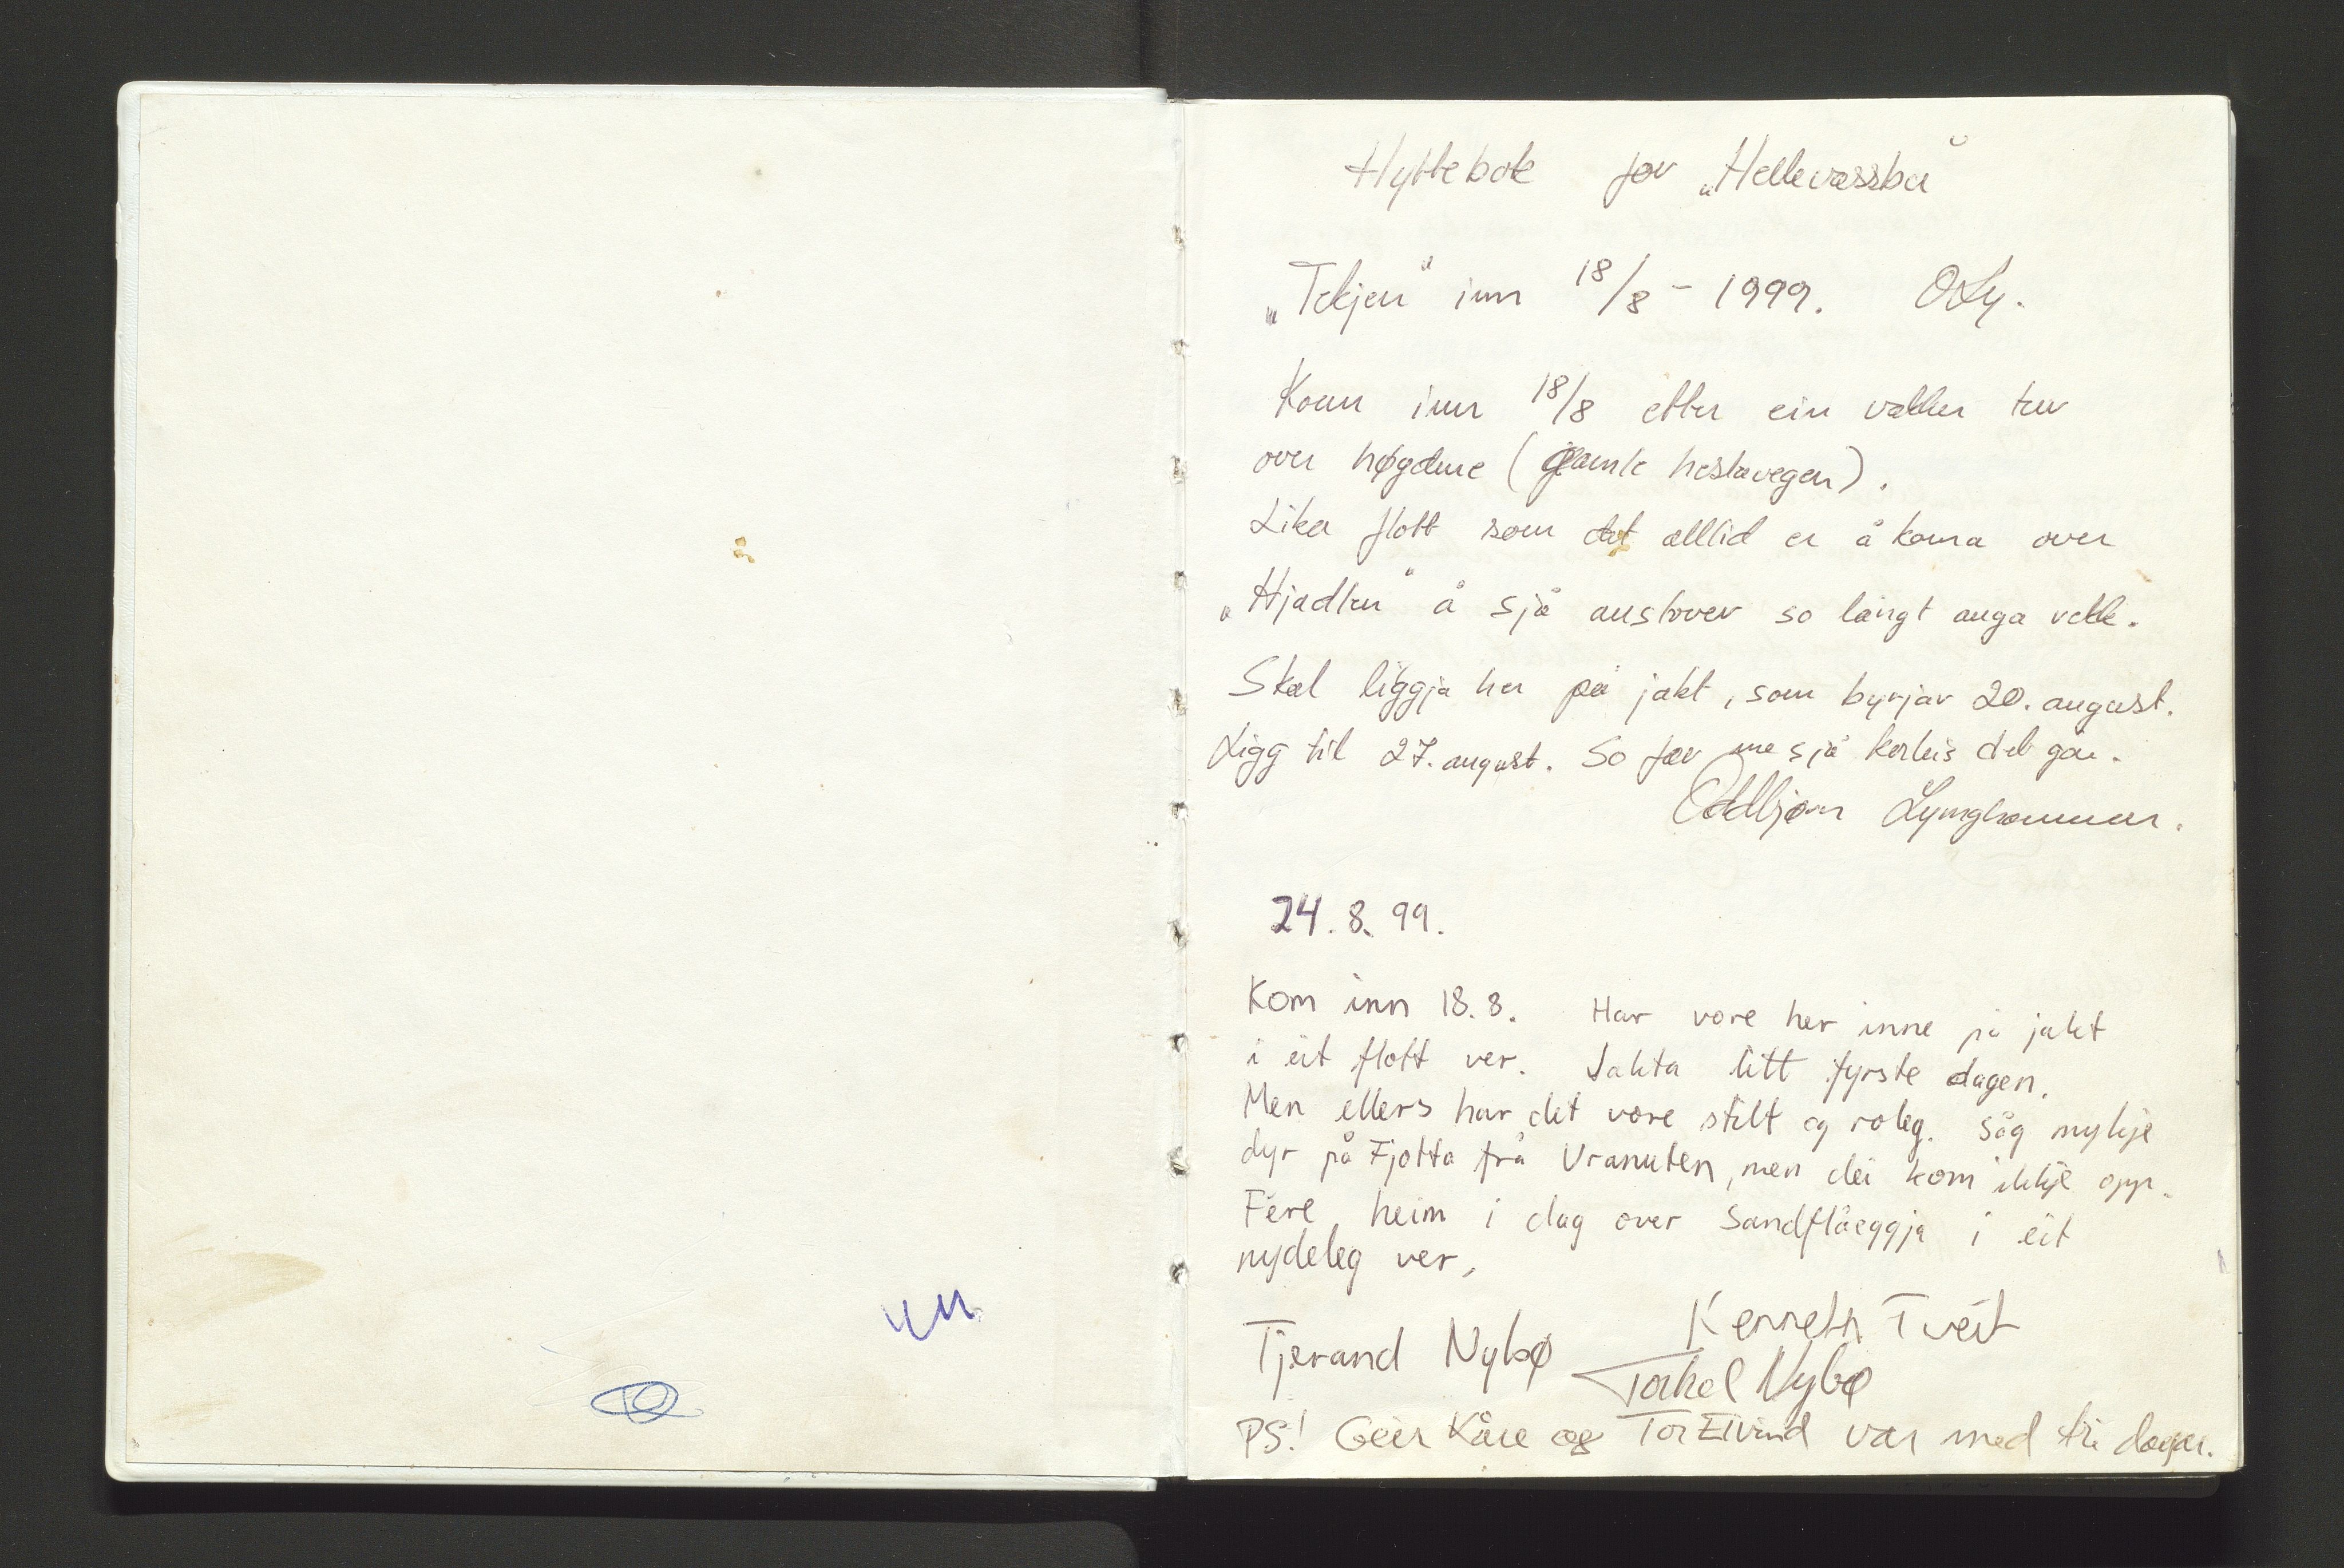 Hyttebok for „Hellevassbu"
„Tekjen" inn 18/8 - 1999. OLy.
Kom inn 18/8 etter ein vakker tur
over høgdene (gamle hestavegen).
Lika flott som det alltid er å koma over
„Hjadlen" å sjå austover so langt auga rekk.
Skal liggja her på jakt, som byrjar 20. august.
Ligg til 27. august. So får me sjå korleis det går.
Oddbjørn Lynghammar.
24. 8. 99.
Kom inn 18. 8. Har vore her inne på jakt
i eit flott ver. Jakta litt fyrste dagen.
Men ellers har det vore stilt og roleg. Såg mykje
dyr på Fjotta frå Uranuten, men dei kom ikkje opp.
Fere heim i dag over Sandflåeggja i eit
nydeleg ver,
Kenneth Tveit
Tjerand Nybø
Torkel Nybø
PS! Geir Kåre og Tor Eivind var med tri dagar.